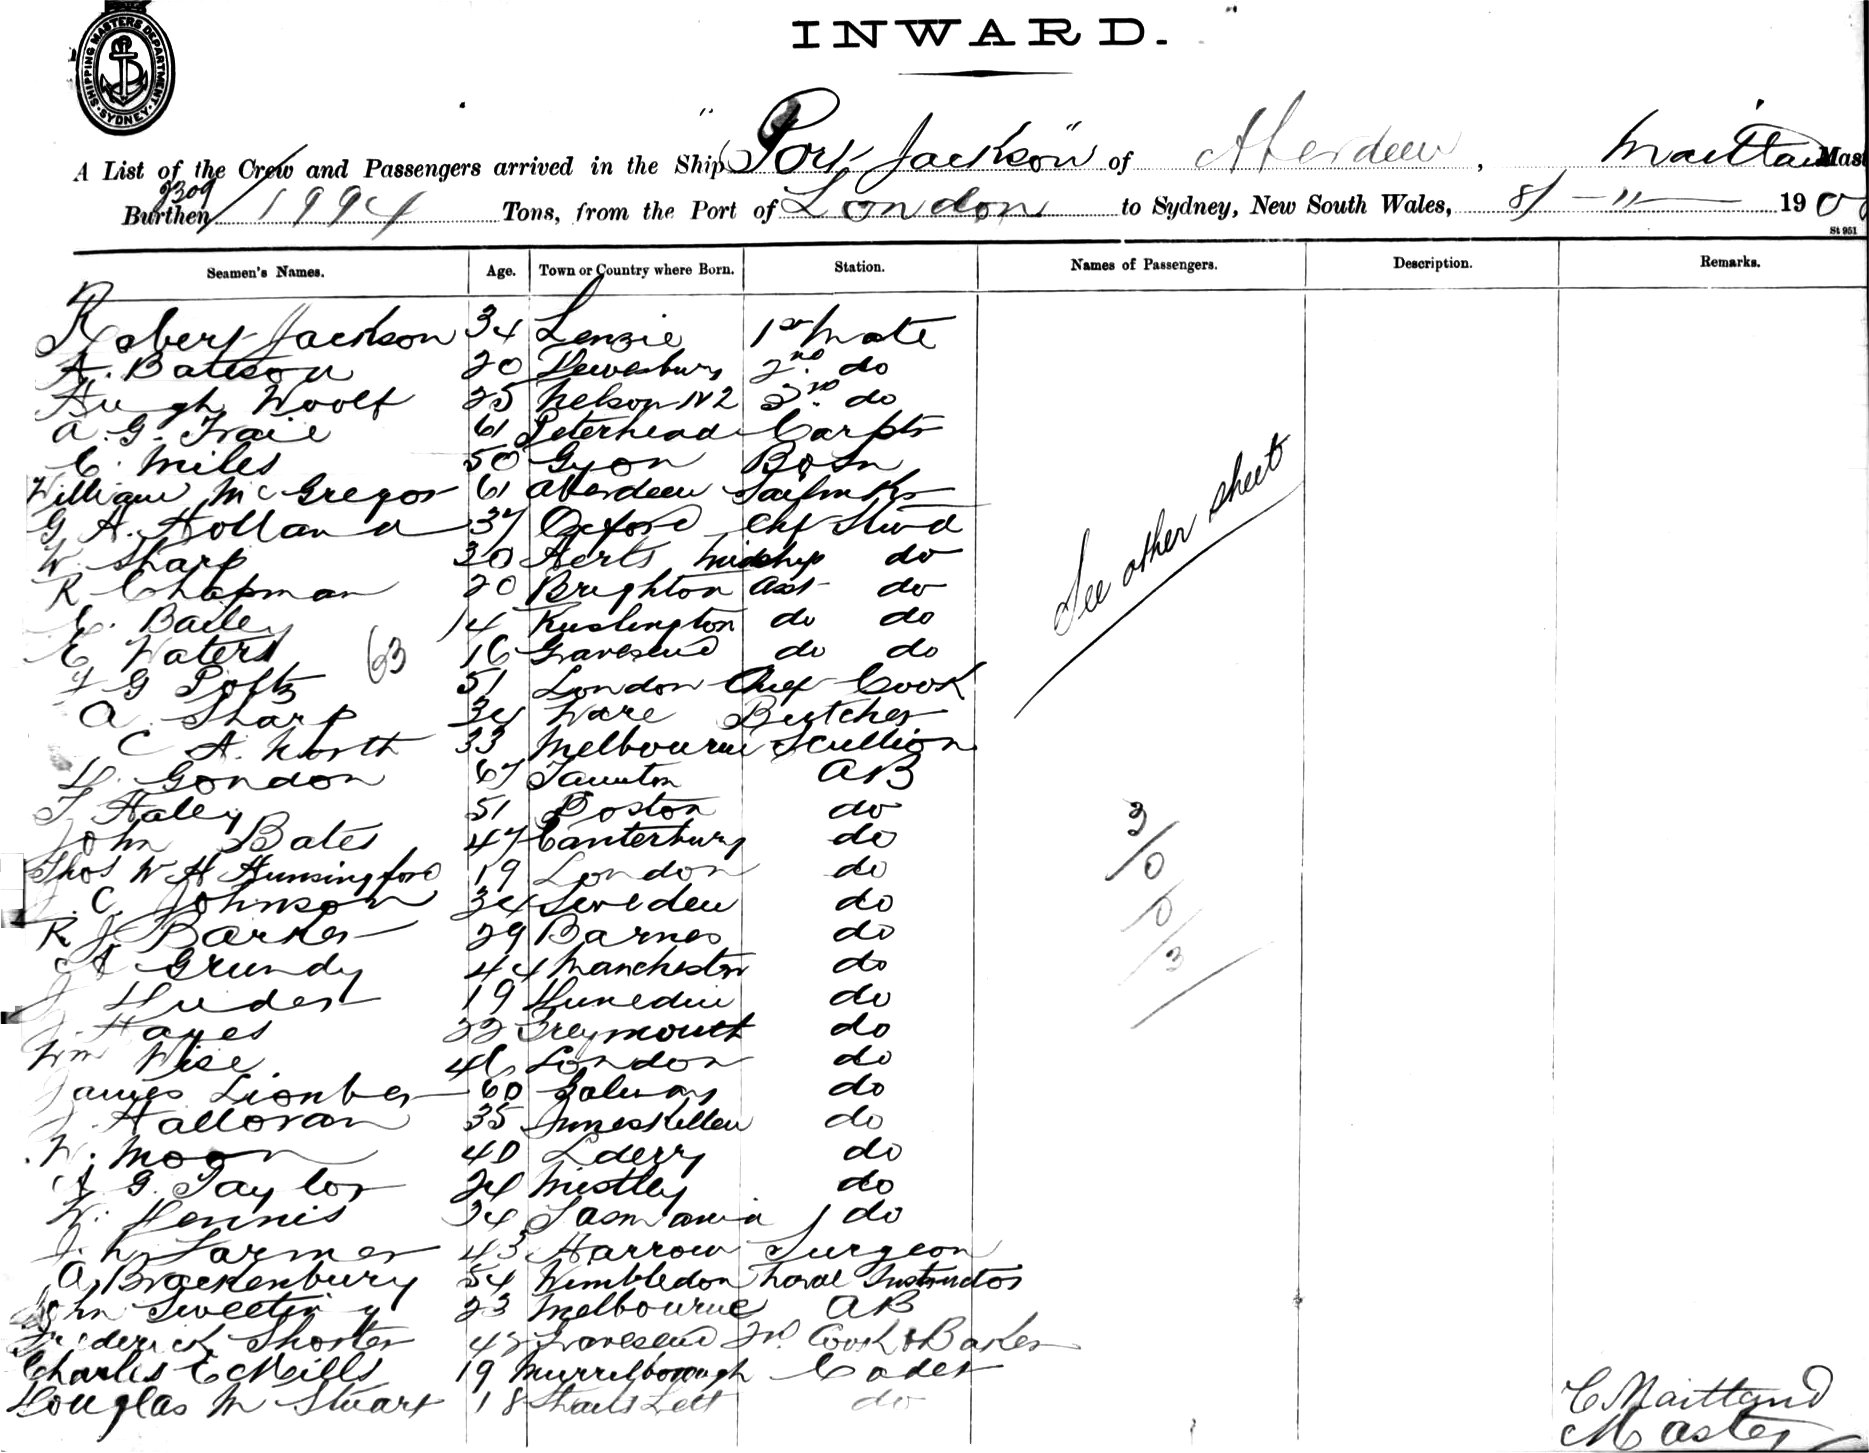 SHIPPING MASTERS DEPARTMENT
SYDNEY
INWARD.
A List of the Crew and Passengers arrived in the Ship "Port Jackson" of Aberdeen, Maitland Mast
2309
Burthen 1994 Tons, from the Port of London to Sydney, New South Wales, 8/ - 11 - 190
St 951
Seamen's Names. Age. Town or Country where Born. Station. Names of Passengers. Description. Remarks.
Robert Jackson 34 Lenzie 1st Mate
A. Bateson 20 Dewesbury 2nd do
Hugh Woolf 25 Nelson NZ 3rd do
A. G. Traie 61 Peterhead Carptr
C. Miles 50 Gyon Bosn
William McGregor 61 Aberdeen Sailmkr
G A. Holland 37 Oxford Chf Stwd
W. Sharp 30 Herts Midship do
R Chapman 20 Brighton Asst do
E. Bailey 14 Kuslington do do
E Waters 16 Gravesend do do
63
F G Poltz 51 London Chief Cook
A. Sharp 34 Ware Butcher
C A. North 33 Melbourne Scullion
D. Gondon 67 Taunton AB
T Haley 51 Boston do
John Bates 47 Canterbury do
Thos W H Hunsingford 19 London do
J. C. Johnson 34 Sweden do
R J Barker 29 Barnes do
A Grundy 44 Manchester do
J Huder 19 Dunedin do
J. Hayes 22 Greymouth do
Wm Wise 46 London do
James Lionber 60 Galway do
J. Halloran 35 Inneskillen do
W. Moon 40 Lderry do
A G. Taylor 24 Mistley do
W. Dennis 34 Tasmania do
J. h. Larmer 43 Harrow Surgeon
A. Brackenbury 54 Wimbledon Naval Instructor
John Sweeting 23 Melbourne AB
Frederick Shorter 42 Gravesend 2nd Cook & Baker
Charles E Neills 19 Murrelborough Cadet
Douglas M Stuart 18 Straits Sett do
See other sheet
3/0
0/3
C Maitland
Master